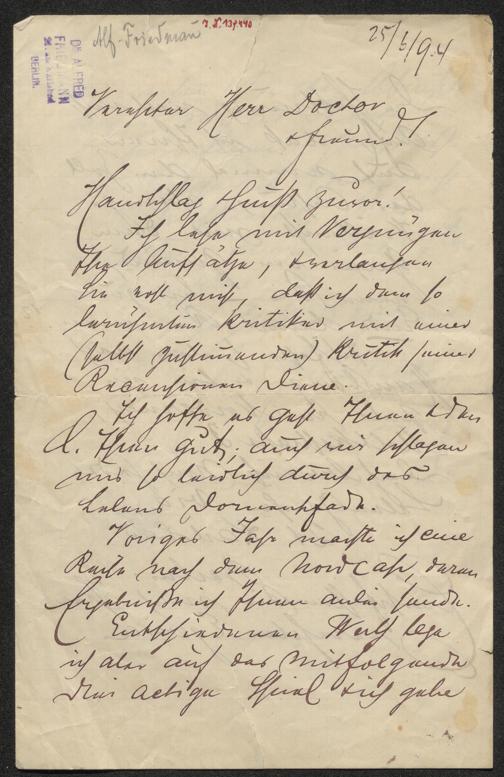 J. N. 139.440
25/6/94
Alf. Friedmann
DR ALFRED
FRIEDMANN
BERLIN.
Verehrter Herr Doctor
& Freund!
Handschlag & Gruß zuvor!
Ich lese mit Vergnügen
Ihre Aufsätze, & verlangen
Sie erst nicht, daß ich dem so
berühmten Kritiker mit einer
(selbst zustimmenden) Kritik seiner
Recensionen Diene.
Ich hoffe es geht Ihnen & den
l. Ihren gut; auch wir schlagen
uns so leidlich durch des
Lebens Dornenpfade.
Voriges Jahr machte ich eine
Reise nach dem Nordcap, deren
Ergebnisse ich Ihnen anbei sende.
Entschiedenen Werth lege
ich aber auf das mitfolgende
drei actige Spiel & ich gebe